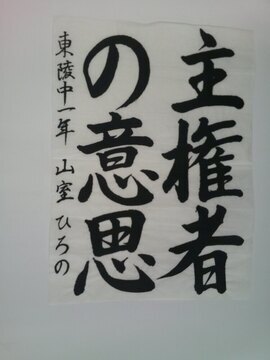 主権者
の意思
東陵中一年 山室ひろの